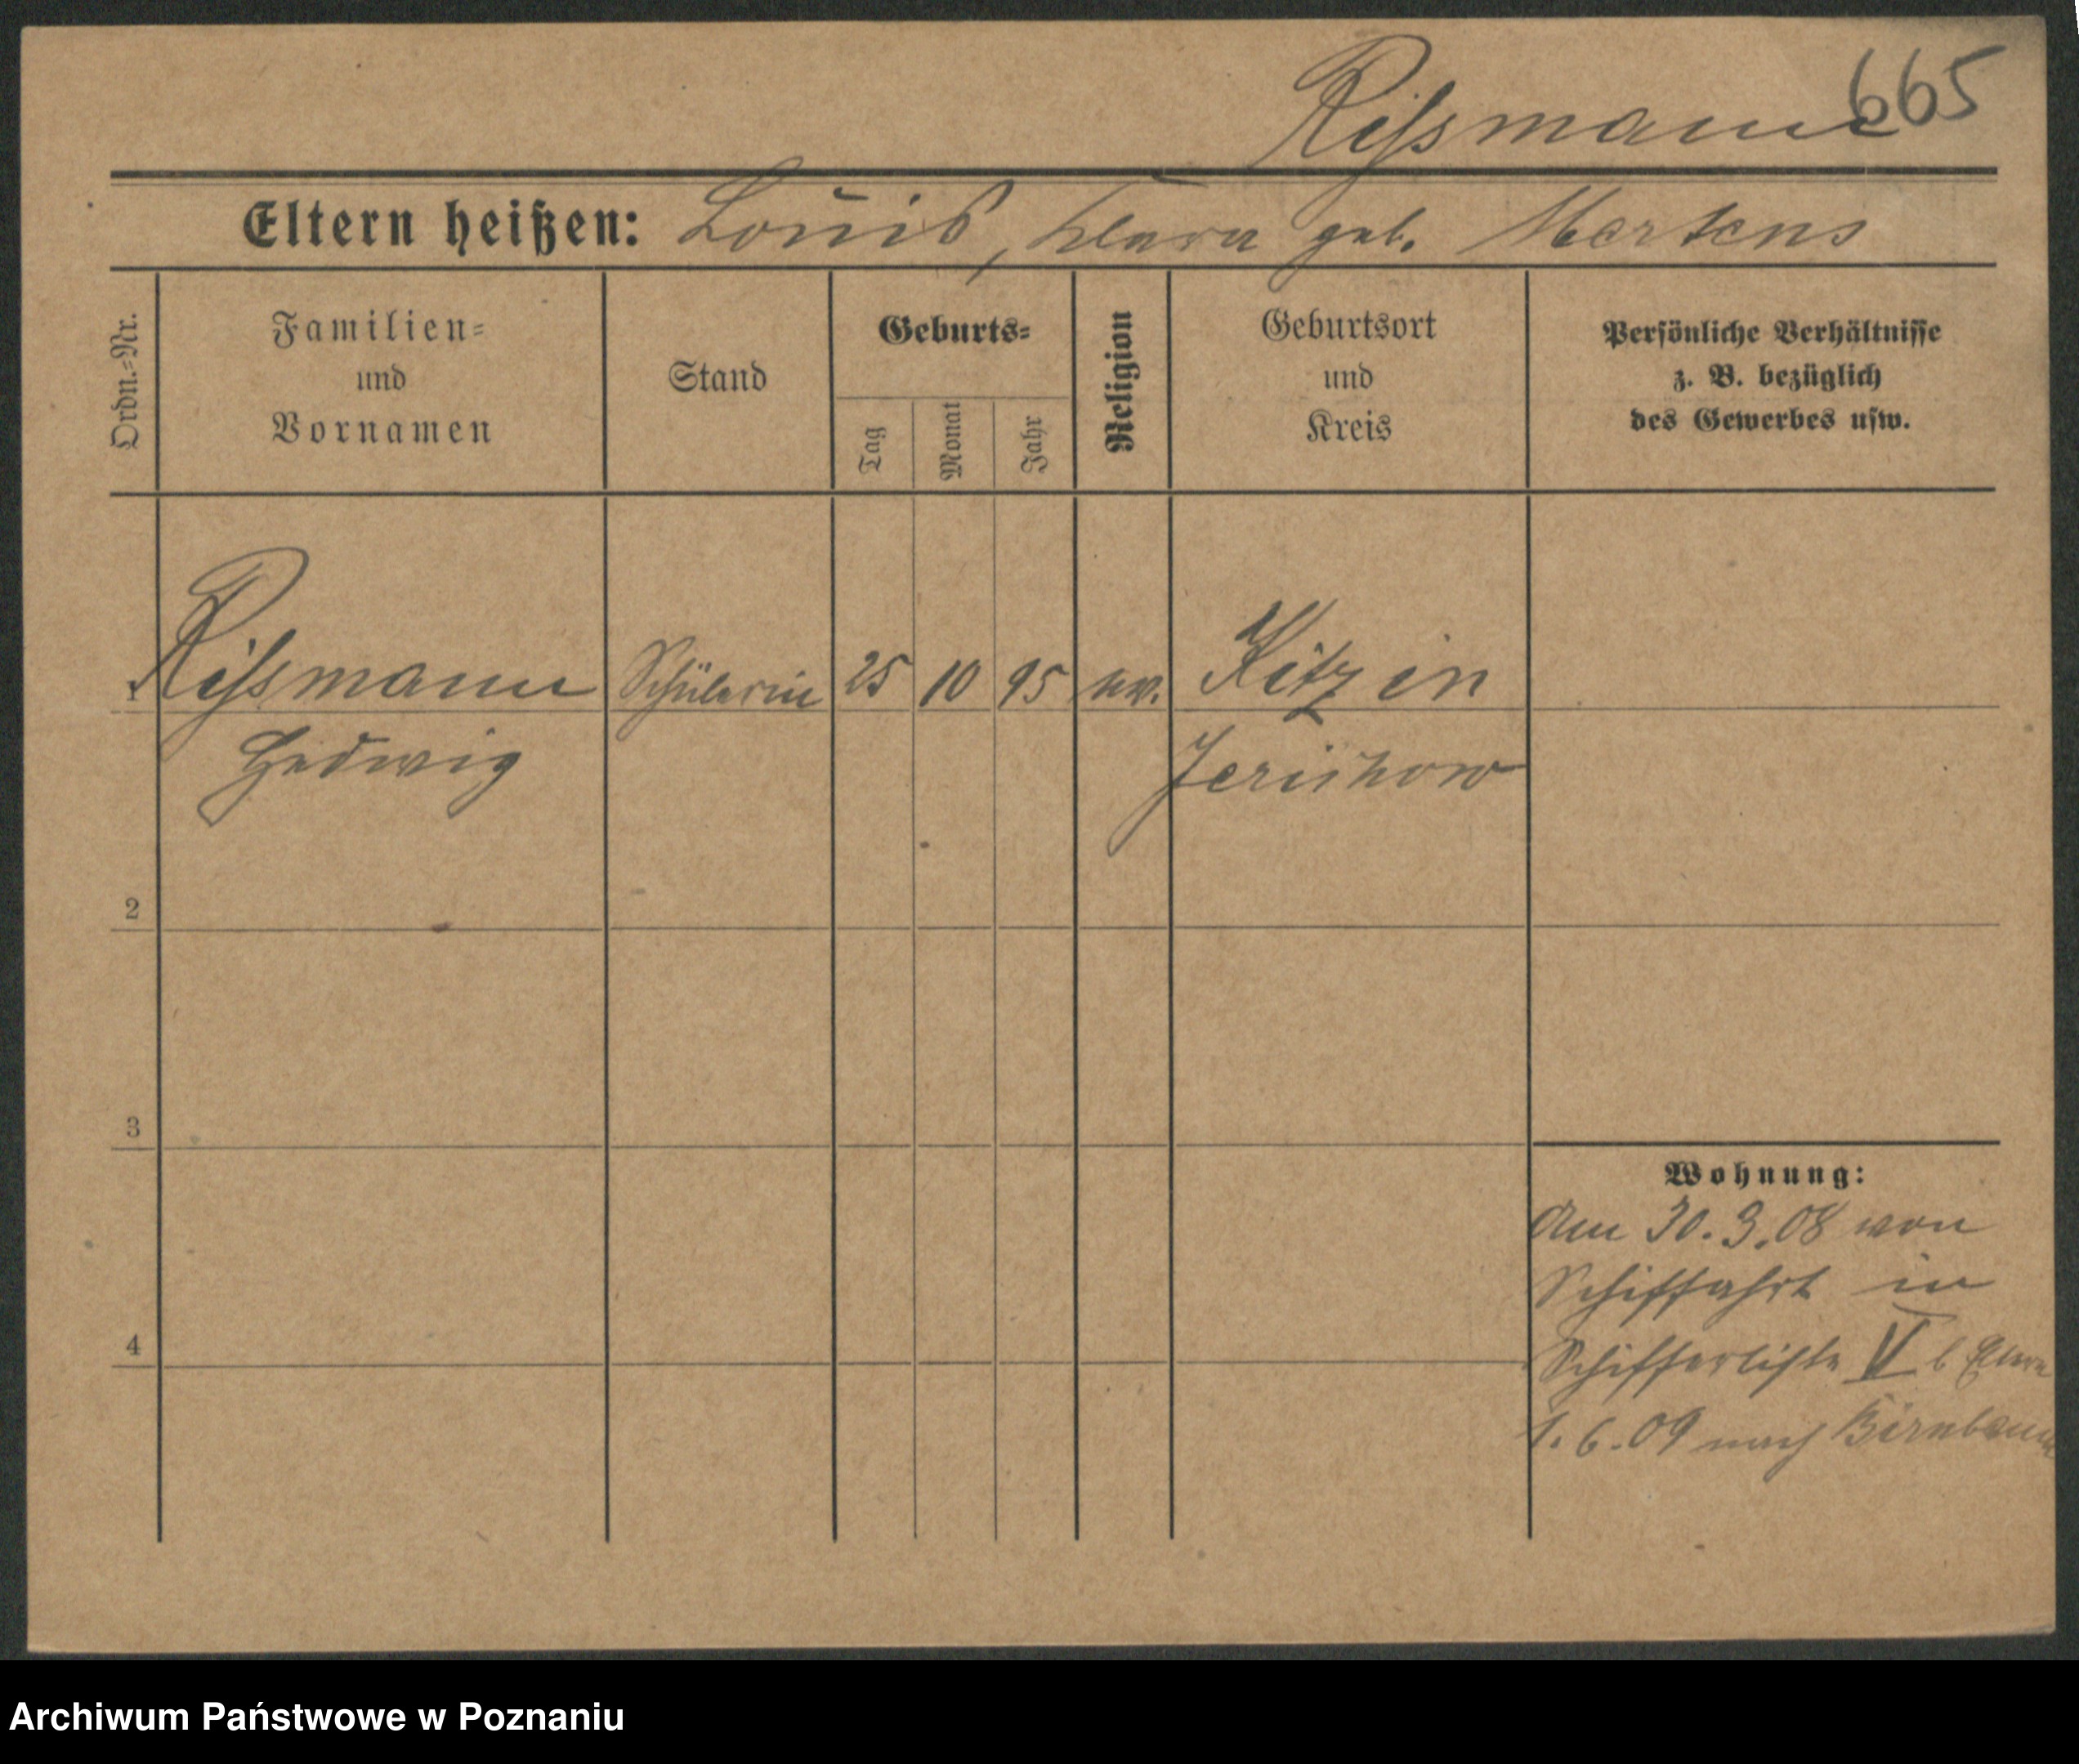 665
Rissmann
Eltern heißen: Louis, Klara geb. Mertens
Ordn.-Nr.
Familien-
und
Vornamen
Stand
Geburts-
Tag
Monat
Jahr
Religion
Geburtsort
und
Kreis
Persönliche Verhältnisse
z. B. bezüglich
des Gewerbes usw.
1 Rissmann Schülerin 25 10 95 ev. Kitzin
Hedwig Jerichow
2
3
4
Wohnung:
Am 30.3.08 von
Schiffahrt in
Schifferliste V b Eltern
1.6.09 nach Birnbaum
Archiwum Państwowe w Poznaniu